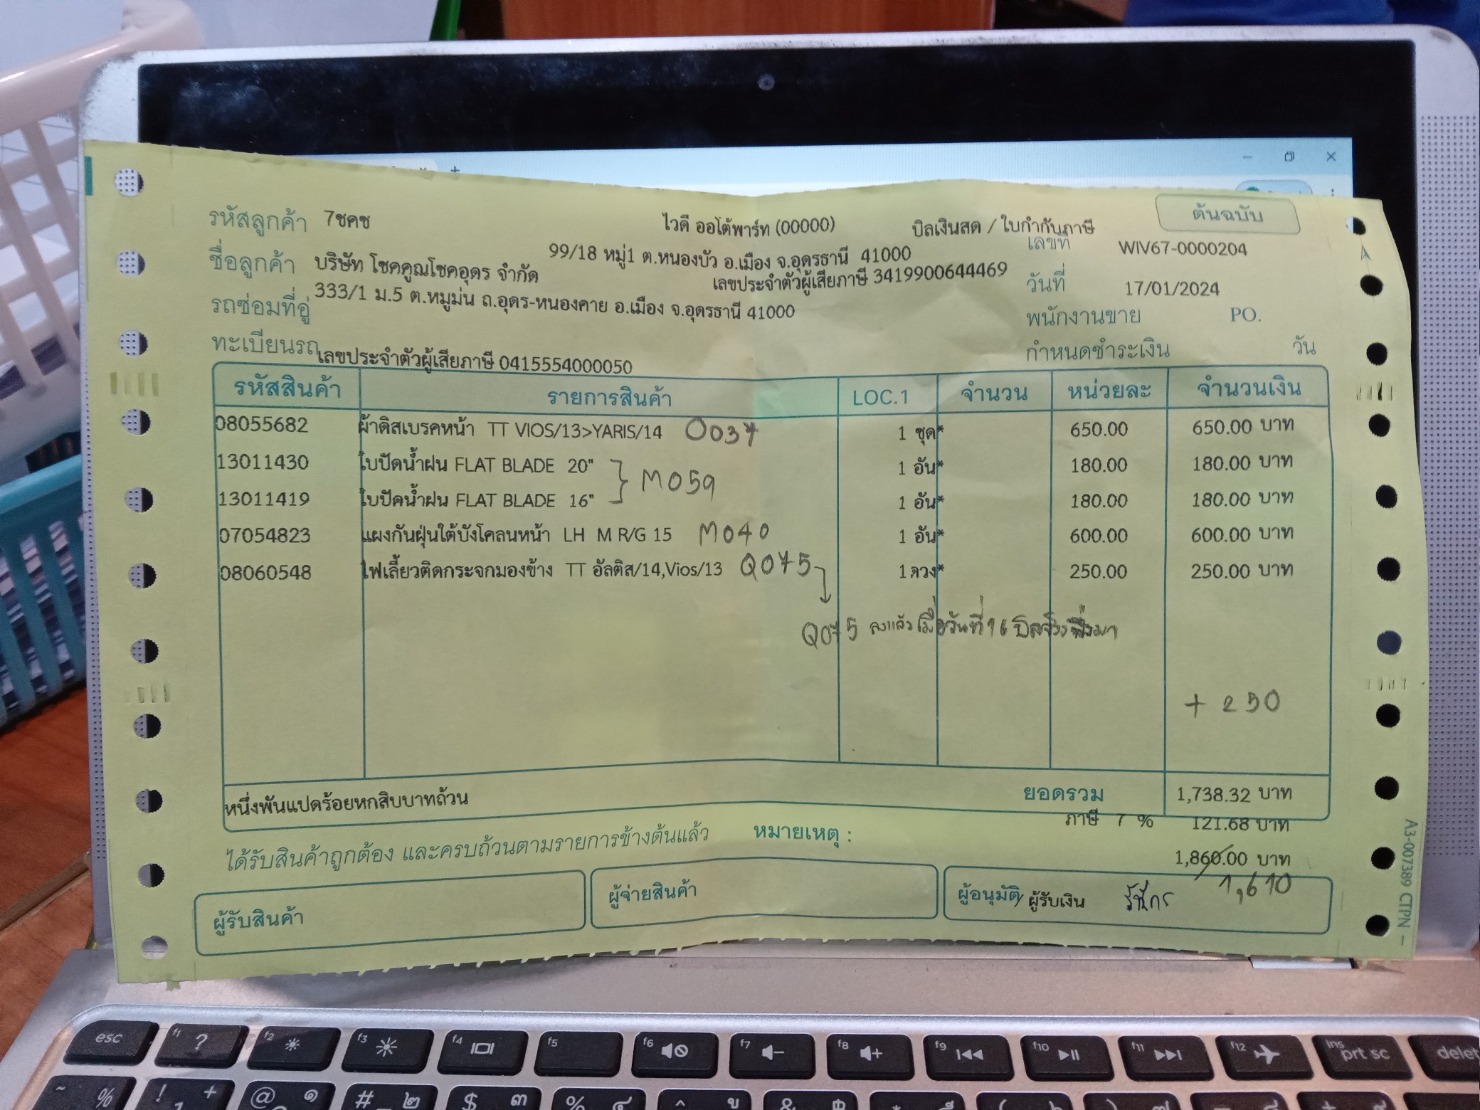 ต้นฉบับ
รหัสลูกค้า 7ชคช ไวดี ออโต้พาร์ท (00000) บิลเงินสด / ใบกำกับภาษี
99/18 หมู่1 ต.หนองบัว อ.เมือง จ.อุดรธานี 41000 เลขที่ WIV67-0000204
ชื่อลูกค้า บริษัท โชคคูณโชคอุดร จำกัด เลขประจำตัวผู้เสียภาษี 3419900644469
วันที่ 17/01/2024
รถซ่อมที่อู่ 333/1 ม.5 ต.หมูม่น ถ.อุดร-หนองคาย อ.เมือง จ.อุดรธานี 41000
พนักงานขาย PO.
ทะเบียนรถ เลขประจำตัวผู้เสียภาษี 0415554000050 กำหนดชำระเงิน วัน
รหัสสินค้า รายการสินค้า LOC.1 จำนวน หน่วยละ จำนวนเงิน
08055682 ผ้าดิสเบรคหน้า TT VIOS/13>YARIS/14 O037 1 ชุด* 650.00 650.00 บาท
13011430 ใบปัดน้ำฝน FLAT BLADE 20" 1 อัน* 180.00 180.00 บาท
M059
13011419 ใบปัดน้ำฝน FLAT BLADE 16" 1 อัน* 180.00 180.00 บาท
07054823 แผงกันฝุ่นใต้บังโคลนหน้า LH M R/G 15 M040 1 อัน* 600.00 600.00 บาท
08060548 ไฟเลี้ยวติดกระจกมองข้าง TT อัลติส/14,Vios/13 Q075 1 ดวง* 250.00 250.00 บาท
Q075 ลงแล้ว เมื่อวันที่ 16 บิลจริงพึ่งมา
+ 250
หนึ่งพันแปดร้อยหกสิบบาทถ้วน ยอดรวม 1,738.32 บาท
ภาษี 7 % 121.68 บาท
ได้รับสินค้าถูกต้อง และครบถ้วนตามรายการข้างต้นแล้ว หมายเหตุ :
1,860.00 บาท
1,610
ผู้รับสินค้า ผู้จ่ายสินค้า ผู้อนุมัติ/ผู้รับเงิน
A3-007389 CTPN -
esc
f1 ?
f2
f3
f4
f5
f6
f7
f8
f9
f10
f11
f12
ins prt sc
delete